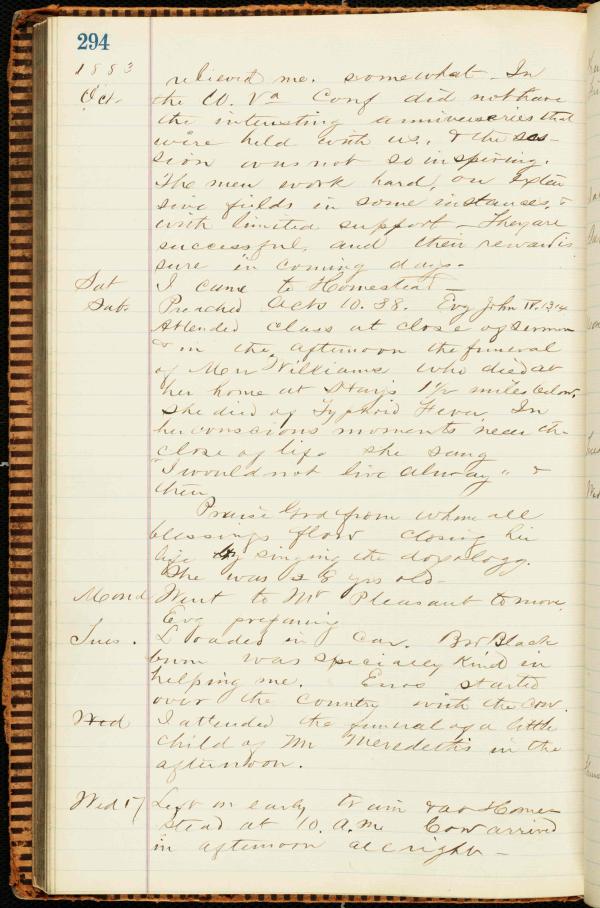 294
1883 relieved me. somewhat - In
Oct. the W. Va Conf did not have
the interesting anniverseries that
were held with us, & the ses-
sion was not so inspiring.
The men work hard, on exten
sive fields in some instances, &
with limited support - They are
successful, and their reward is
sure in coming days -
Sat I came to Homestead -
Sab. Preached Acts 10.38. Evg John
Attended class at close of sermon
& in the afternoon the funeral
of Williams who died at
her home at 1½ miles below.
She died of Typhoid Fever. In
her conscious moments near the
close of life she sang
"I would not live alway" &
then
Praise God from whom all
blessings flow closing her
life by singing the doxology.
She was 28 yrs old -
Mond Went to Mt Pleasant to move.
Evg preparing
Tues. Loaded in Car. Bro Black
burn was specially kind in
helping me. started
over the country with the cow.
Wed I attended the funeral of a little
child of Mr Meredeths in the
afternoon.
Wed 17 Left on early train & at Home-
stead at 10. A.M. Cow arrived
in afternoon all right -